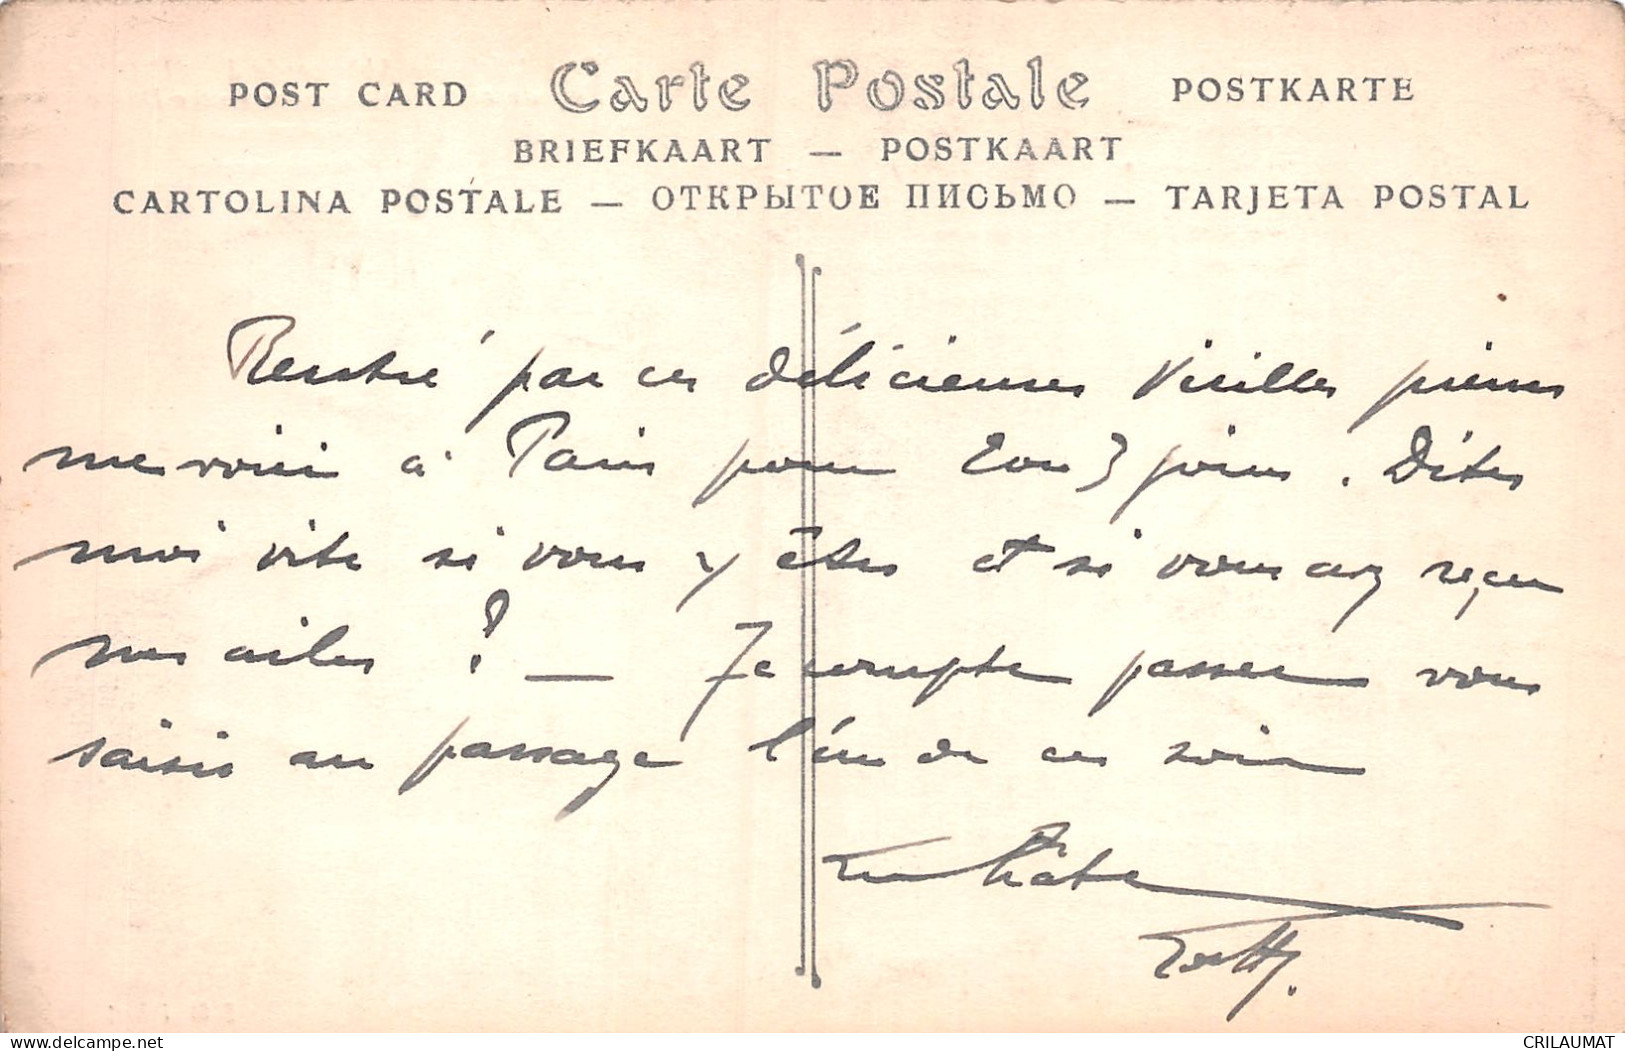 POST CARD Carte Postale POSTKARTE
BRIEFKAART — POSTKAART
CARTOLINA POSTALE — ОТКРЫТОЕ ПИСЬМО — TARJETA POSTAL
Rentré par ces délicieuses vieilles pierres
me voici à Paris pour 2 ou 3 jours. Dites
moi vite si vous y êtes et si vous avez reçu
mes toiles ? — Je compte passer vous
saisir au passage l'un de ces soirs
hâte
www.delcampe.net
CRILAUMAT